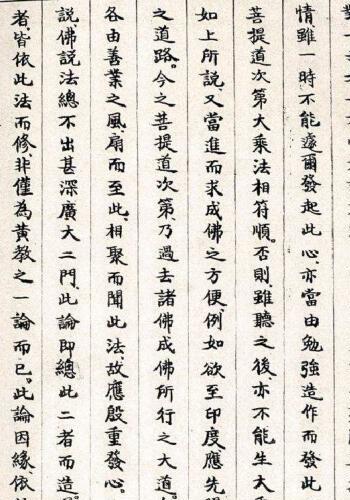 情、雖一時不能遽爾發起此心、亦當由勉強造作而發此
菩提道次第大乘法相符順。否則、雖聽之後、亦不能生大
如上所說、又當進而求成佛之方便、例如欲至印度、應先
之道路。今之菩提道次第乃過去諸佛成佛所行之大道
各由善業之風、扇而至此、相聚而聞此法、故應殷重發心。
說、佛說法總不出甚深廣大二門、此論即總此二者而造
者、皆依此法而修、非僅為黃教之一論而已。此論因緣、依